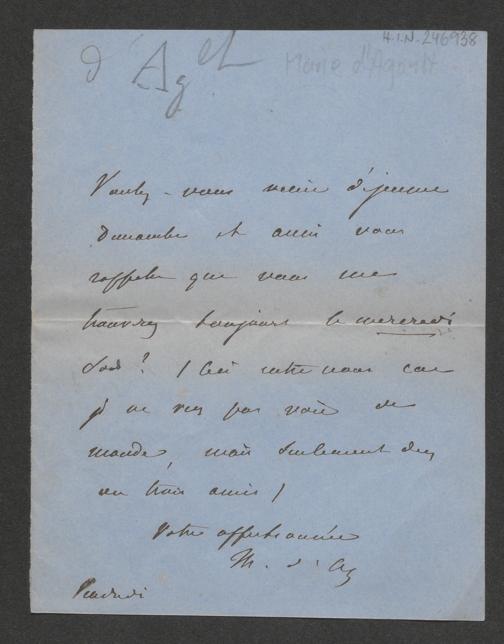 H.I.N. 246938
d'Ag
Marie d'Agoult
Voulez-vous venir déjeuner
Dimanche et aussi vous
rappeler que vous me
trouvez toujours le mercredi
soir ? (Ceci entre nous car
je ne veux pas voir de
monde, mais seulement deux
ou trois amis)
Votre affectionnée
M. d'Ag
Vendredi